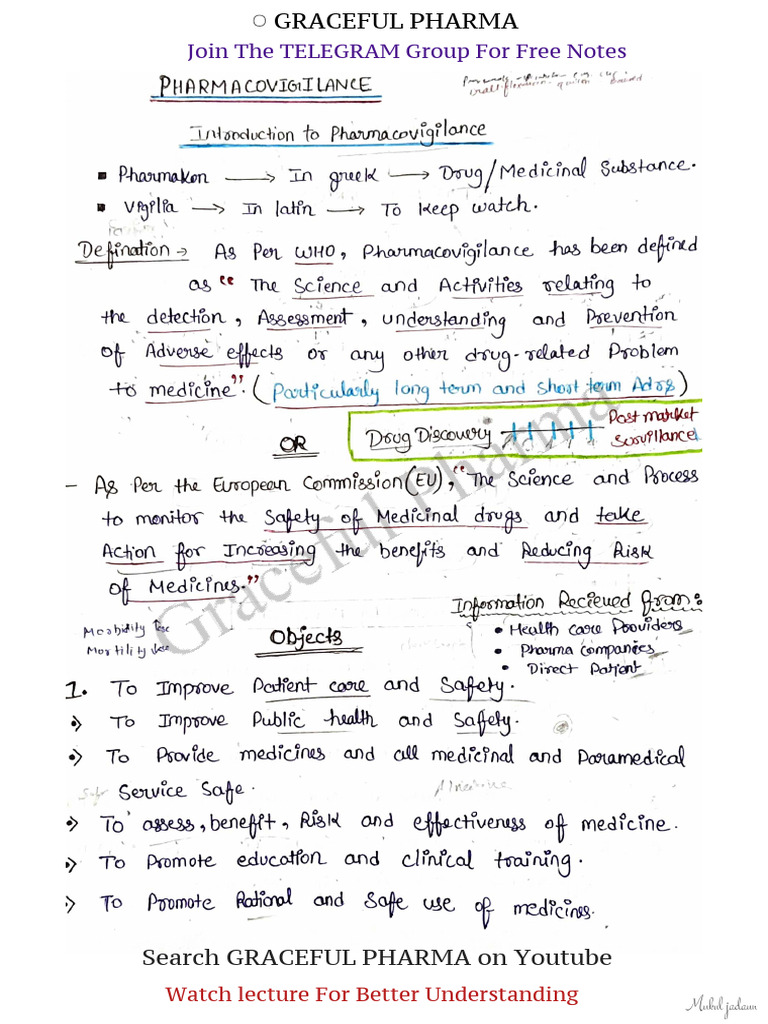 ○ GRACEFUL PHARMA
Join The TELEGRAM Group For Free Notes
PHARMACOVIGILANCE
Introduction to Pharmacovigilance
▪ Pharmakon → In greek → Drug/Medicinal Substance.
▪ Vigilia → In latin → To keep watch.
Defination → As Per WHO, Pharmacovigilance has been defined
as "The Science and Activities relating to
the detection, Assessment, understanding and Prevention
of Adverse effects or any other drug-related Problem
to medicine". (Particularly long term and short term Adrs)
OR
Drug Discovery
Post market
survillance
- As Per the European Commission (EU), "The Science and Process
to monitor the Safety of Medicinal drugs and take
Action for Increasing the benefits and Reducing Risk
of Medicines."
Information Recieved from:
• Health care Providers
• Pharma companies
• Direct Patient
Morbidity
Mortility
Objects
1. To Improve Patient care and Safety.
•) To Improve Public health and Safety.
•) To Provide medicines and all medicinal and Paramedical
Service Safe.
•) To assess, benefit, Risk and effectiveness of medicine.
•) To Promote education and clinical training.
•) To Promote Rational and Safe use of medicines.
Graceful Pharma
Search GRACEFUL PHARMA on Youtube
Watch lecture For Better Understanding
Mukul jadaun